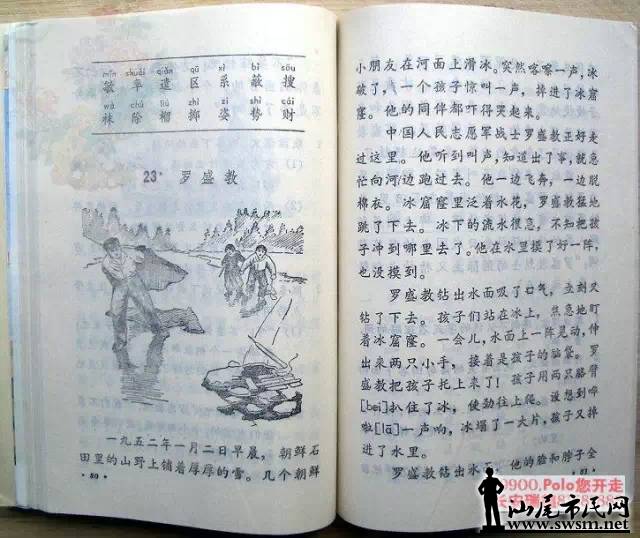 mǐn shuài qiǎn qū xì bì sōu
敏 率 遣 区 系 蔽 搜
wà chú liú zhì zī shì cái
袜 除 榴 掷 姿 势 财
23* 罗盛教
一九五二年一月二日早晨，朝鲜石
田里的山野上铺着厚厚的雪。几个朝鲜
· 80 ·
小朋友在河面上滑冰。突然喀嚓一声，冰
破了，一个孩子惊叫一声，掉进了冰窟
窿。他的同伴都吓得哭起来。
中国人民志愿军战士罗盛教正好走
过这里。他听到叫声，知道出了事，就急
忙向河边跑过去。他一边飞奔，一边脱
棉衣。冰窟窿里泛着水花，罗盛教猛地
跳了下去。冰下的流水很急，不知把孩
子冲到哪里去了。他在水里摸了好一阵，
也没摸到。
罗盛教钻出水面吸了口气，立刻又
钻了下去。孩子们站在冰上，焦急地盯
着冰窟窿。一会儿，水面上一阵晃动，伸
出来两只小手，接着是孩子的脑袋。罗
盛教把孩子托上来了！孩子用两只胳臂
[bei]扒住了冰，使劲往上爬。谁想到哗
啦[lā]一声响，冰塌了一大片，孩子又掉
进了水里。
罗盛教钻出水 他的脸和脖子全
· 81 ·
0900.Polo您开走
汕尾市民网
www.swsm.net